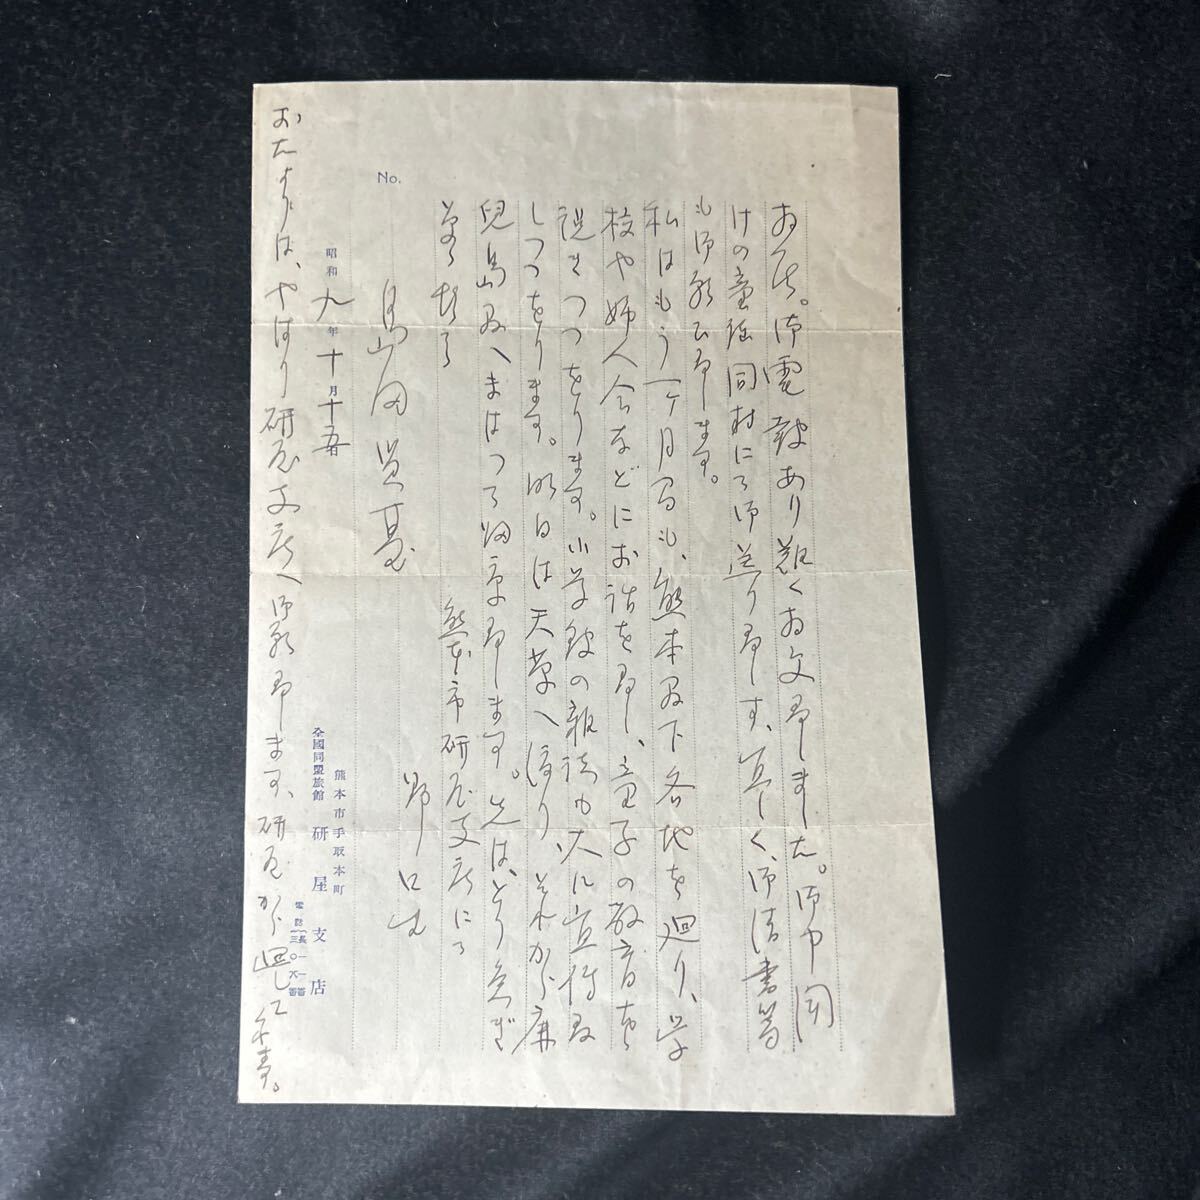 お手紙。御電報あり難くお文申しました。御申聞
けの童謡同封にて御送り申します、宜しく、御清書等
も御願ひ申します。
私はもう一ヶ月間も、熊本縣下各地を廻り、学
校や婦人会などにお話を申し、童子の教育を
説きつつをります。小学校の雑誌も大に宣傳致
しつつをります。明日は天草へ渡り、それから鹿
兒島縣へまはつて帰京申します。先は、とり急ぎ
草々頓首
熊本市研屋支店にて
野口生
島田賢臺
昭和九年十月十五日
熊本市手取本町
全國同盟旅館 研屋支店
No.
おたよりは、やはり研屋支店へ御願申します、研屋から廻して来ます。